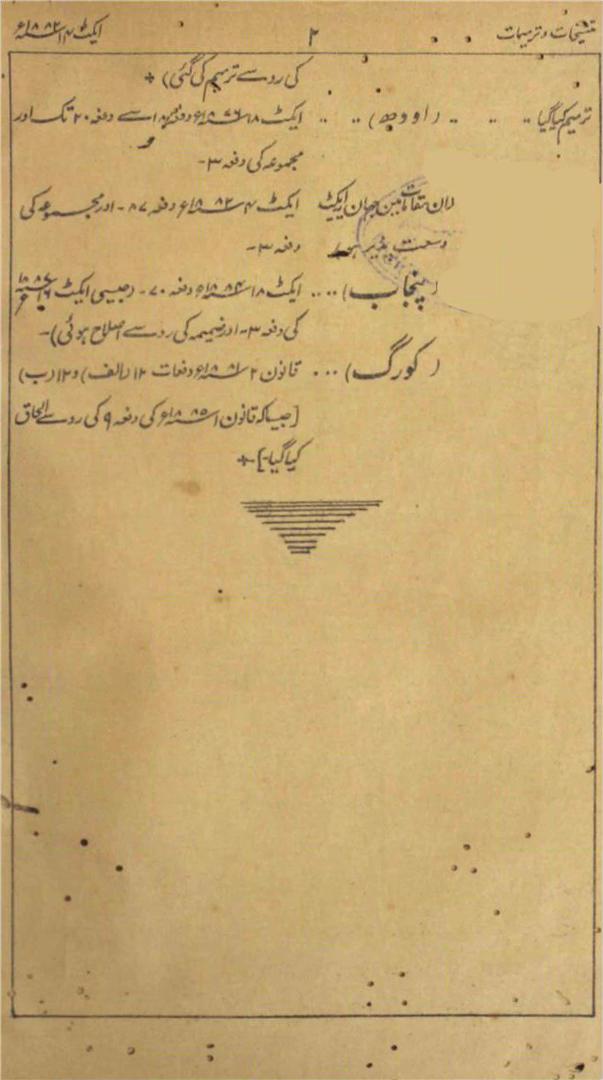 تنسیخات و ترمیمات ۲ ایکٹ ۱۴ سنہ ۱۸۸۲ء
کی رو سے ترمیم کی گئی) +
ترمیم کیا گیا .. .. .. (اودھ) .. .. ایکٹ ۱۸ سنہ ۱۸۷۶ء دفعہ سے دفعہ ۲۰ تک اور
مجموعہ کی دفعہ ۳-
(ان مقامات میں جہاں یہ ایکٹ ایکٹ ۴ سنہ ۱۸۸۲ء دفعہ ۸۷- اور مجموعہ کی
وسعت پذیر ہو) دفعہ ۳-
(پنجاب) .... ایکٹ ۱۸ سنہ ۱۸۸۴ء دفعہ ۷۰- (جیسی ایکٹ سنہ ۱۸۸۷ء
کی دفعہ ۳- اور ضمیمہ کی رو سے اصلاح ہوئی)-
(کورگ) ... قانون ۲ سنہ ۱۸۸۱ء دفعات ۱۲ (الف) و ۱۲ (ب)
[جیسا کہ قانون ۱ سنہ ۱۸۸۵ء کی دفعہ ۹ کی رو سے الحاق
کیا گیا-] +